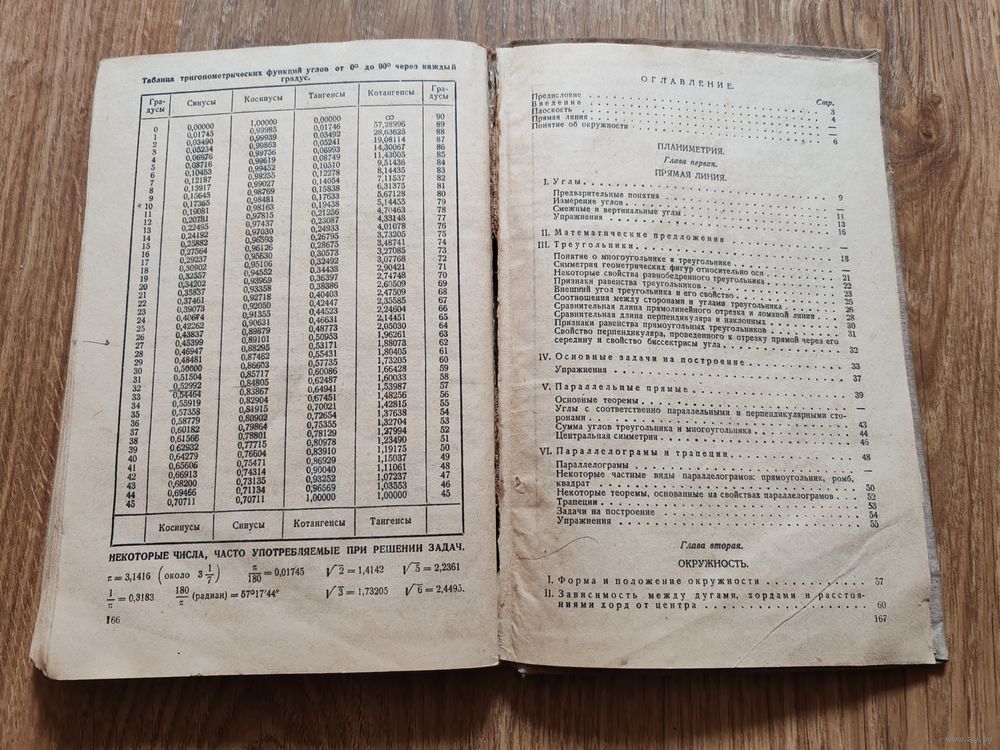 Таблица тригонометрических функций углов от 0° до 90° через каждый
градус.
Градусы Синусы Косинусы Тангенсы Котангенсы Градусы
0 0,00000 1,00000 0,00000 ∞ 90
1 0,01745 0,99985 0,01746 57,28996 89
2 0,03490 0,99939 0,03492 28,63625 88
3 0,05234 0,99863 0,05241 19,08114 87
4 0,06976 0,99756 0,06993 14,30067 86
5 0,08716 0,99619 0,08749 11,43005 85
6 0,10453 0,99452 0,10510 9,51436 84
7 0,12187 0,99255 0,12278 8,14435 83
8 0,13917 0,99027 0,14054 7,11537 82
9 0,15643 0,98769 0,15838 6,31375 81
10 0,17365 0,98481 0,17633 5,67128 80
11 0,19081 0,98163 0,19438 5,14455 79
12 0,20791 0,97815 0,21256 4,70463 78
13 0,22495 0,97437 0,23087 4,33148 77
14 0,24192 0,97030 0,24933 4,01078 76
15 0,25882 0,96593 0,26795 3,73205 75
16 0,27564 0,96126 0,28675 3,48741 74
17 0,29237 0,95630 0,30573 3,27085 73
18 0,30902 0,95106 0,32492 3,07768 72
19 0,32557 0,94552 0,34438 2,90421 71
20 0,34202 0,93969 0,36397 2,74748 70
21 0,35837 0,93358 0,38386 2,60509 69
22 0,37461 0,92718 0,40403 2,47509 68
23 0,39073 0,92050 0,42447 2,35585 67
24 0,40674 0,91355 0,44523 2,24604 66
25 0,42262 0,90631 0,46631 2,14451 65
26 0,43837 0,89879 0,48773 2,05030 64
27 0,45399 0,89101 0,50953 1,96261 63
28 0,46947 0,88295 0,53171 1,88073 62
29 0,48481 0,87462 0,55431 1,80405 61
30 0,50000 0,86603 0,57735 1,73205 60
31 0,51504 0,85717 0,60086 1,66428 59
32 0,52992 0,84805 0,62487 1,60033 58
33 0,54464 0,83867 0,64941 1,53987 57
34 0,55919 0,82904 0,67451 1,48256 56
35 0,57358 0,81915 0,70021 1,42815 55
36 0,58779 0,80902 0,72654 1,37638 54
37 0,60182 0,79864 0,75355 1,32704 53
38 0,61566 0,78801 0,78129 1,27994 52
39 0,62932 0,77715 0,80978 1,23490 51
40 0,64279 0,76604 0,83910 1,19175 50
41 0,65606 0,75471 0,86929 1,15037 49
42 0,66913 0,74314 0,90040 1,11061 48
43 0,68200 0,73135 0,93252 1,07237 47
44 0,69466 0,71134 0,96569 1,03553 46
45 0,70711 0,70711 1,00000 1,00000 45
Косинусы Синусы Котангенсы Тангенсы
НЕКОТОРЫЕ ЧИСЛА, ЧАСТО УПОТРЕБЛЯЕМЫЕ ПРИ РЕШЕНИИ ЗАДАЧ.
π = 3,1416 (около 3 1/7) π/180 = 0,01745 √2 = 1,4142 √5 = 2,2361
1/π = 0,3183 180/π (радиан) = 57°17′44″ √3 = 1,73205 √6 = 2,4495.
166
ОГЛАВЛЕНИЕ.
Стр.
Предисловие 3
Введение 4
Плоскость —
Прямая линия —
Понятие об окружности 6
ПЛАНИМЕТРИЯ.
Глава первая.
ПРЯМАЯ ЛИНИЯ.
I. Углы 9
Предварительные понятия —
Измерение углов 11
Смежные и вертикальные углы 13
Упражнения 16
II. Математические предложения —
III. Треугольники 18
Понятие о многоугольнике и треугольнике —
Симметрия геометрических фигур относительно оси 21
Некоторые свойства равнобедренного треугольника 22
Признаки равенства треугольников 23
Внешний угол треугольника и его свойство 25
Соотношения между сторонами и углами треугольника 26
Сравнительная длина прямолинейного отрезка и ломаной линии 28
Сравнительная длина перпендикуляра и наклонных 30
Признаки равенства прямоугольных треугольников 31
Свойство перпендикуляра, проведенного к отрезку прямой через его
середину и свойство биссектрисы угла 32
IV. Основные задачи на построение 33
Упражнения 37
V. Параллельные прямые 39
Основные теоремы —
Углы с соответственно параллельными и перпендикулярными сто-
ронами 43
Сумма углов треугольника и многоугольника 44
Центральная симметрия 46
VI. Параллелограмы и трапеции 48
Параллелограмы —
Некоторые частные виды параллелограмов: прямоугольник, ромб,
квадрат 50
Некоторые теоремы, основанные на свойствах параллелограмов 52
Трапеции 53
Задачи на построение 54
Упражнения 55
Глава вторая.
ОКРУЖНОСТЬ.
I. Форма и положение окружности 57
II. Зависимость между дугами, хордами и расстоя-
ниями хорд от центра 60
167
www.ay.by